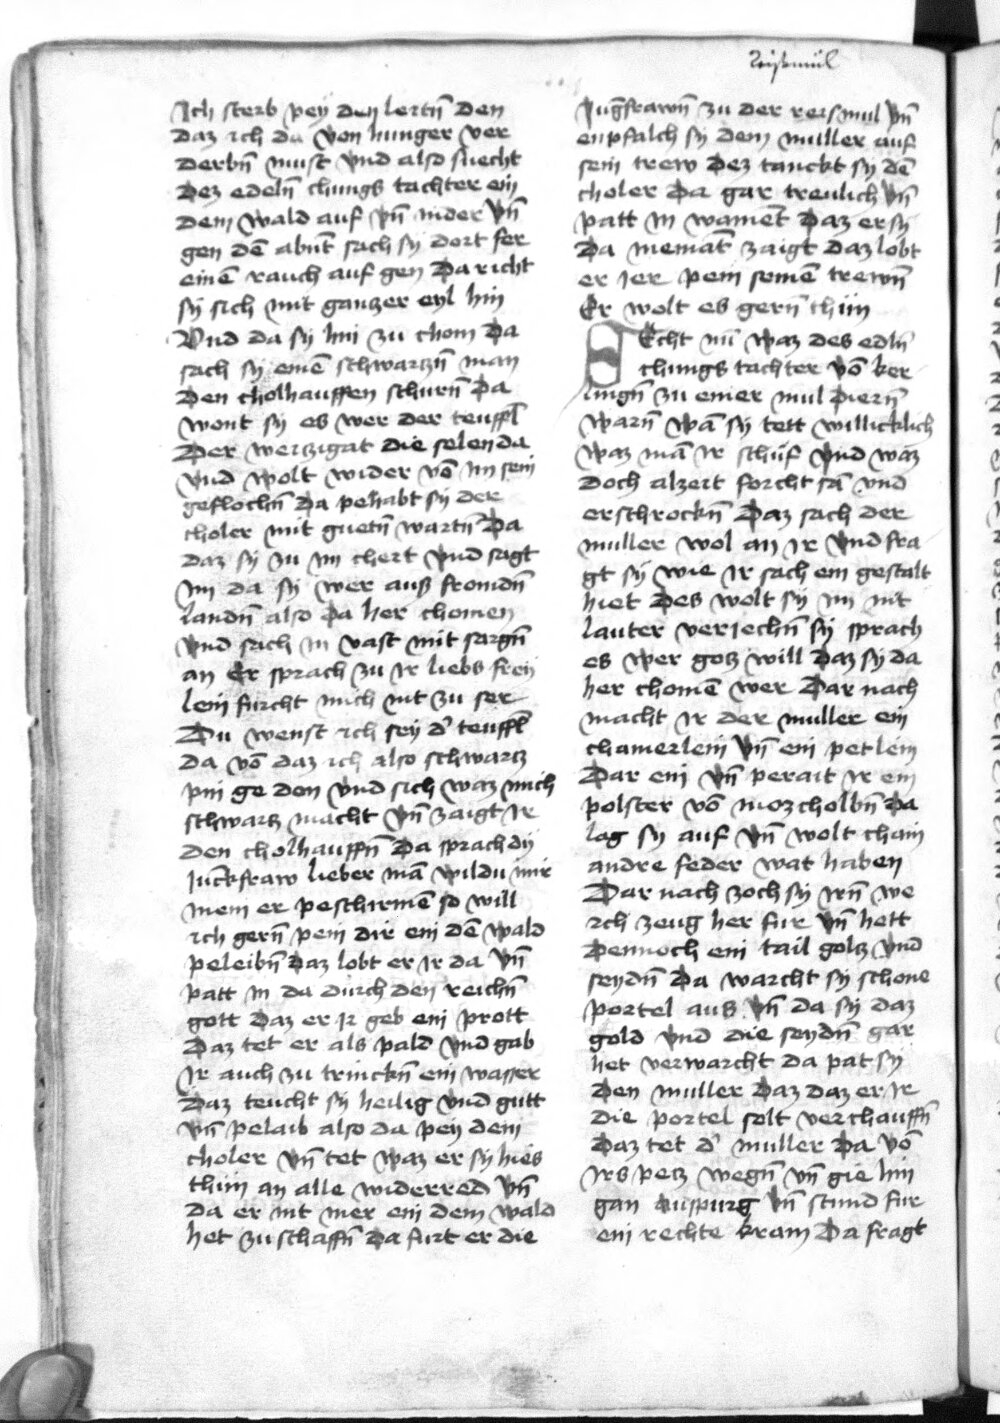 Reismül
Ich sterb peÿ den lertn̄ den
daz ich da von hunger ver
derbn̄ must vnd also suecht
Dez edeln̄ chungs tachter ein
dem wald auf vn̄ nider vn̄
gen dē abnt̄ sach sÿ dort fer
einē rauch auf gen Da richt
sÿ sich mit ganczer eyl hin
Vnd da sÿ hin zu chom Da
sach sÿ einē schwarczn̄ man
Den cholhauffen schurn̄ Da
wont sÿ es wer der teuffl
Der werczigat die selen da
vnd wolt wider vō im sein
geflochn̄ Da pehabt sÿ der
choler mit guetn̄ wartn̄ Da
daz sÿ zu im chert vnd sagt
im da sÿ wer auß fromdn̄
landn̄ also Da her chomen
vnd sach in vast mit sargn̄
an Er sprach zu ir liebs freÿ
lein furcht mich nit zu ser
Du wenst ich seÿ d' teuffl
da vō daz ich also schwarcz
pin ge den vnd sich waz mich
schwarcz macht vn̄ zaigt ir
den cholhauffn̄ Da sprach dÿ
Junckfraw lieber mā wildu mir
mein er peschirmē so will
ich gern̄ pein dir ein dē wald
peleibn̄ Daz lobt er ir da vn̄
patt in da durch den reichn̄
gott Daz er ir geb ein prott
Daz tet er als pald vnd gab
ir auch zu trinckn̄ ein wasser
Daz teucht sÿ heilig vnd gutt
vn̄ pelaib also da peÿ dem
choler vn̄ tet waz er sÿ hies
thun an alle widerred vn̄
da er nit mer ein dem wald
het zu schaffn̄ Da furt er die
Jungfrawn̄ zu der reismul vn̄
enpfalch sÿ dem muller auf
sein trew Dez tanckt sÿ dē
choler Da gar treulich vn̄
patt in wament̄ Daz er sÿ
Da niemāt zaigt Daz lobt
er ier pein seinē trewn̄
Er wolt es gern̄ thun
Secht nu waz des edln̄
chungs tachter vō ker
lingn̄ zu einer mul Diern̄
warn̄ wā sÿ tett willicklich
waz mā ir schuf vnd waz
doch alzeit forcht sā vnd
erschrockn̄ Daz sach der
muller wol an ir vnd fra
gt sÿ wie ir sach ein gestalt
hiet Des wolt sÿ im nit
lauter veriechn̄ sÿ sprach
es wer gocz will Daz sÿ da
her chomē wer Dar nach
macht ir der muller ein
chamerlein vn̄ ein petlein
Dar ein vn̄ perait ir ein
polster vō mozcholbn̄ Da
lag sÿ auf vn̄ wolt chain
andre feder wat haben
Dar nach zoch sÿ irn̄ we
rch zeug her fur vn̄ hett
Dennoch ein tail golcz vnd
seydn̄ Da warcht sÿ schone
portel aus vn̄ da sÿ daz
gold vnd die seydn̄ gar
het verwarcht da pat sÿ
den muller Daz daz er ir
die portel solt verchauffn̄
Daz tet d' muller Da vō
irs pecz wegn̄ vn̄ gie hin
gan auspurg vn̄ stund fur
ein rechte kram Da fragt